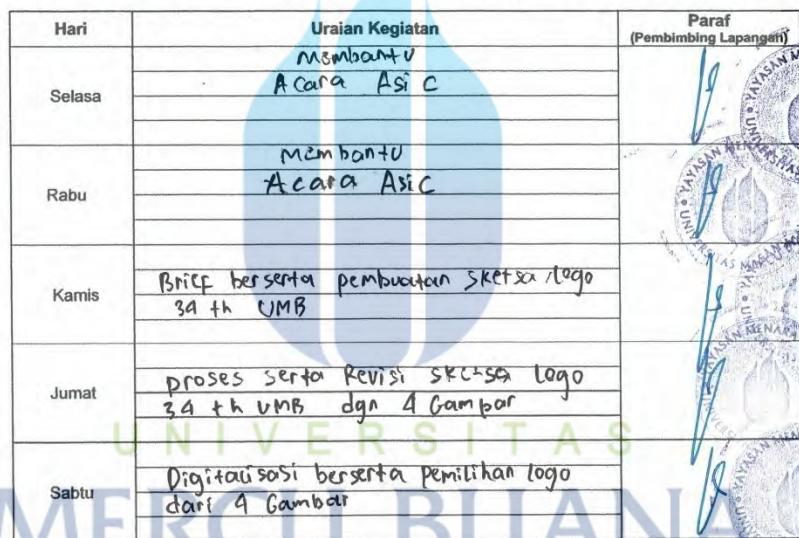 Hari Uraian Kegiatan Paraf
(Pembimbing Lapangan)
Selasa
Membantu
Acara Asic
Rabu
Membantu
Acara Asic
Kamis
Brief berserta pembuatan sketsa logo
34 th UMB
Jumat
proses serta Revisi sketsa logo
34 th UMB dgn 4 Gambar
UNIVERSITAS
Sabtu
Digitalisasi berserta pemilihan logo
dari 4 Gambar
MERCU BUANA